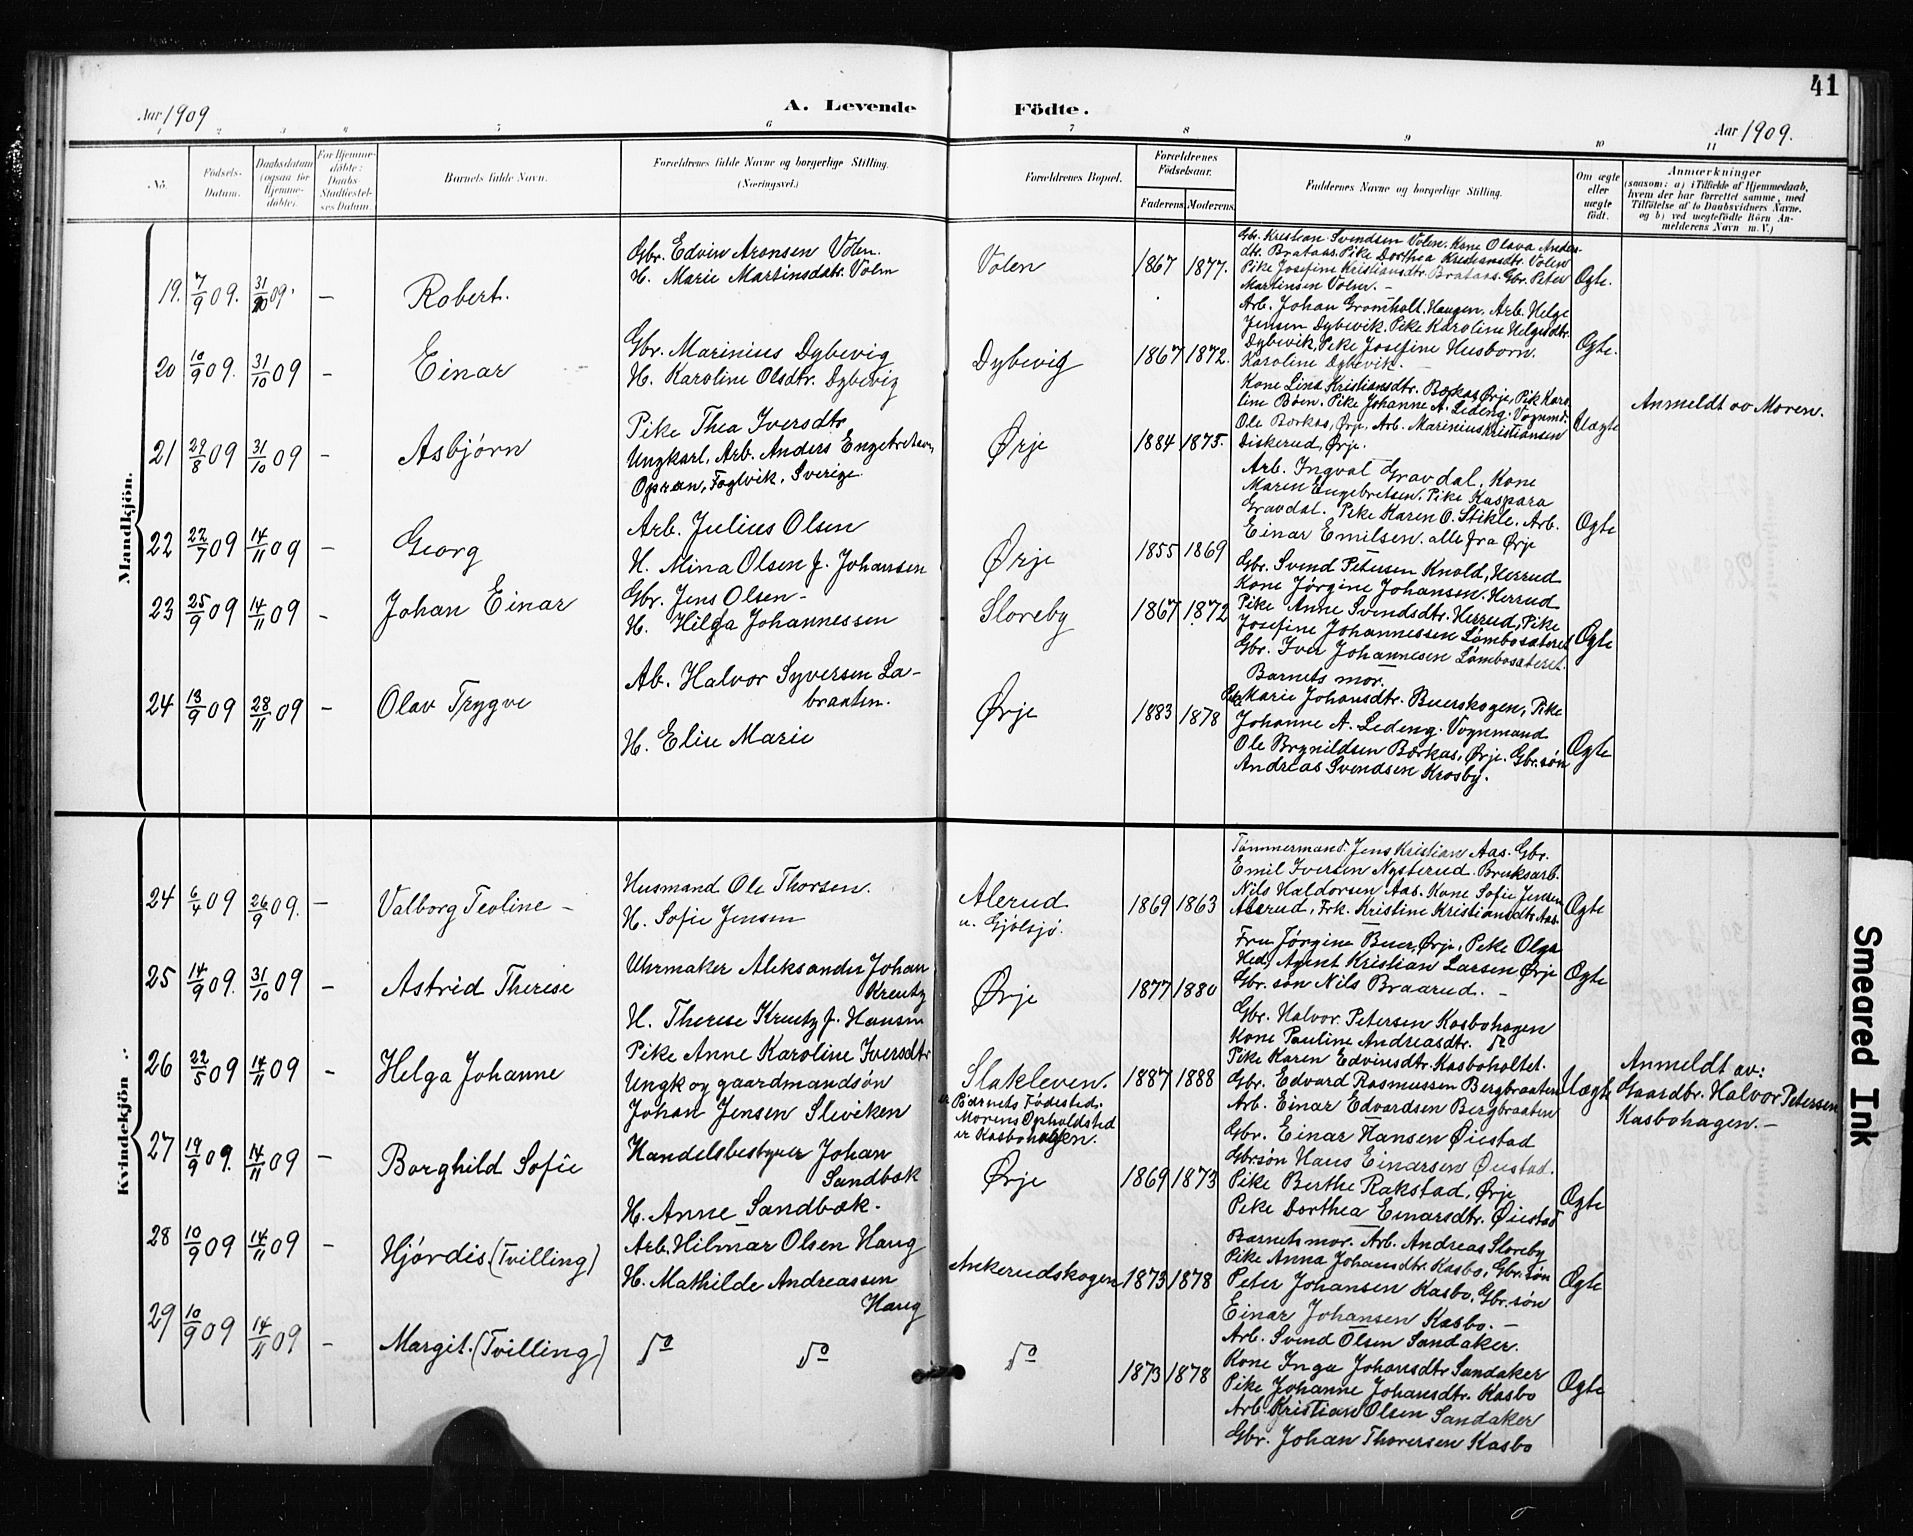 41
Aar 1909
A. Levende Födte.
Aar 1909.
1 2 3 4 5 6 7 8 9 10 11
No.
Födsels-Datum.
Daabsdatum (ogsaa for Hjemme-döbte).
For Hjemme-döbte: Daabs-Stadfæstel-ses Datum.
Barnets fulde Navn.
Forældrenes fulde Navne og borgerlige Stilling. (Næringsvei.)
Forældrenes Bopæl.
Forældrenes Födselsaar.
Faderens. Moderens.
Faddernes Navne og borgerlige Stilling.
Om ægte eller uægte födt.
Anmærkninger
(saasom: a) i Tilfælde af Hjemmedaab,
hvem der har forrettet samme, med
Tilföielse af to Daabsvidners Navne,
og b) ved uægtefödte Börn An-
melderens Navn m. V.)
Mandkjön.
19. 7/9 09. 31/10 09. –
Robert.
Gbr. Edvin Aronsen Volen.
H. Marie Martinsdatr. Volen
Volen
1867 1877.
Gbr. Kristian Svendsen Volen. Kone Olava Anders-
dtr. Brataas. Pike Dorthea Kristiansdtr. Volen
Pike Josefine Kristiansdtr. Brataas. Gbr. Peter
Martinsen Volen. –
Ægte.
20 10/9 09. 31/10 09 –
Einar
Gbr. Marinius Dybevig
H. Karoline Olsdtr. Dybevig
Dybevig
1867 1872.
Arb. Johan Gromholt. Haugen, Arb. Helge
Jensen Dybevik. Pike Karoline Helgesdtr.
Dybevik, Pike Josefine Husborn.
Karoline Dybevik. –
Ægte.
21 29/8 09 31/10 09 –
Asbjørn
Pike Thea Iversdtr
Ungkarl, Arb. Anders Engebretsen,
Foglvik, Sverige.
Ørje
1884 1875.
Kone Lina Kristiansdtr. Børkas, Ørje, Pik. Karo
line Bøen. Pike Johanne A. Lideng. Vognmd.
Ole Børkas, Ørje, Arb. Marinius Kristiansen
Diskerud, Ørje.
Uægte
Anmeldt av Moren.
22 22/7 09 14/11 09 –
Georg
Arb. Julius Olsen
H. Mina Olsen f. Johansen
Ørje
1855 1869
Arb. Ingvat Gravdal, Kone
Maren Engebretsen. Pike Kaspara
Gravdal. Pike Karen O. Stikle. Arb.
Einar Emilsen. alle fra Ørje
Ægte
23 25/9 09 14/11 09 –
Johan Einar
Gbr. Jens Olsen –
H. Hilga Johannessen
Sloreby
1867 1872
Gbr. Svend Petersen Knold, Herrud
Kone Jørgine Johansen. Herrud
Pike Anne Svendsdtr. Herrud, Pike
Josefine Johannessen Lømbosæteret
Gbr. Iver Johannesen Lømbosæteret.
Ægte
24 13/9 09 28/11 09 –
Olav Trygve
Ab. Halvor Syversen La-
braaten.
H. Elise Marie
Ørje
1883 1878
Barnets mor.
Marie Johansdtr. Buerskogen, Pike
Johanne A. Lideng. Vognmand
Ole Brynildsen Børkas, Ørje. Gbr.søn
Andreas Svendsen Krosby.
Ægte
Kvindekjön
24 6/4 09 26/9 09. –
Valborg Teoline –
Husmand Ole Thorsen.
H. Sofie Jensen
Alerud
u. Gjølsjø.
1869 1863
Tømmermand. Jens Kristian Aas. Gbr.
Emil Iversen Nysterud Bruksarb.
Nils Haldorsen Aas. Kone Sofie Jensen
Alerud, Frk. Kristine Kristiansdtr. Aas.
Ægte
25 14/9 09. 31/10 09 –
Astrid Therese
Uhrmaker Aleksander Johan
Kreutz
H. Therese Kreutz f. Hansen
Ørje
1877 1880
Fru Jørgine Buer, Ørje, Pike Olga
Hed, Agent Kristian Larsen Ørje
Gbr. søn Nils Braarud. –
Ægte
26 22/5 09 14/11 09 –
Helga Johanne
Pike Anne Karoline Iversdtr
Ungk og gaardmandsøn
Johan Jensen Sleviken
Slakleven.
er Barnets Fødested.
Morens Opholdsted
er Kasbohagen.
1887 1888
Gbr. Halvor Petersen Kasbohagen
Kone Pauline Andreasdtr. do
Pike Karen Edvinsdtr. Kasboholtet.
Gbr. Edvard Rasmussen Bergbraaten
Arb. Einar Edvardsen Bergbraaten
Uægte
Anmeldt av:
Gaardbr. Halvor Petersen
Kasbohagen. –
27 19/9 09. 14/11 09 –
Borghild Sofie
Handelsbestyrer Johan
Sandbæk
H. Anne Sandbæk.
Ørje
1869 1873
Gbr. Einar Hansen Øiestad
Gbr.søn Hans Einarsen Øiestad.
Pike Berthe Rakstad, Ørje
Pike Dorthea Einarsdtr. Øiestad
Ægte
28 10/9 09 14/11 09 –
Hjørdis. (Tvilling)
Arb. Hilmar Olsen Haug
H. Mathilde Andreassen
Haug
Ankerudskogen
1873 1878
Barnets mor. Arb. Andreas Sloreby
Pike Anna Johansdtr. Kasbo, Gbr.søn
Peter Johansen Kasbo, Gbr.søn
Einar Johansen Kasbo. –
Ægte
29 10/9 09 14/11 09 –
Margit. (Tvilling)
do do
do
1873 1878
Arb. Svend Olsen Sandaker.
Kone Inga Johansdtr Sandaker
Pike Johanne Johansdtr. Kasbo
Arb. Kristian Olsen Sandaker
Gbr. Johan Thorersen Kasbo
Ægte
Smeared Ink